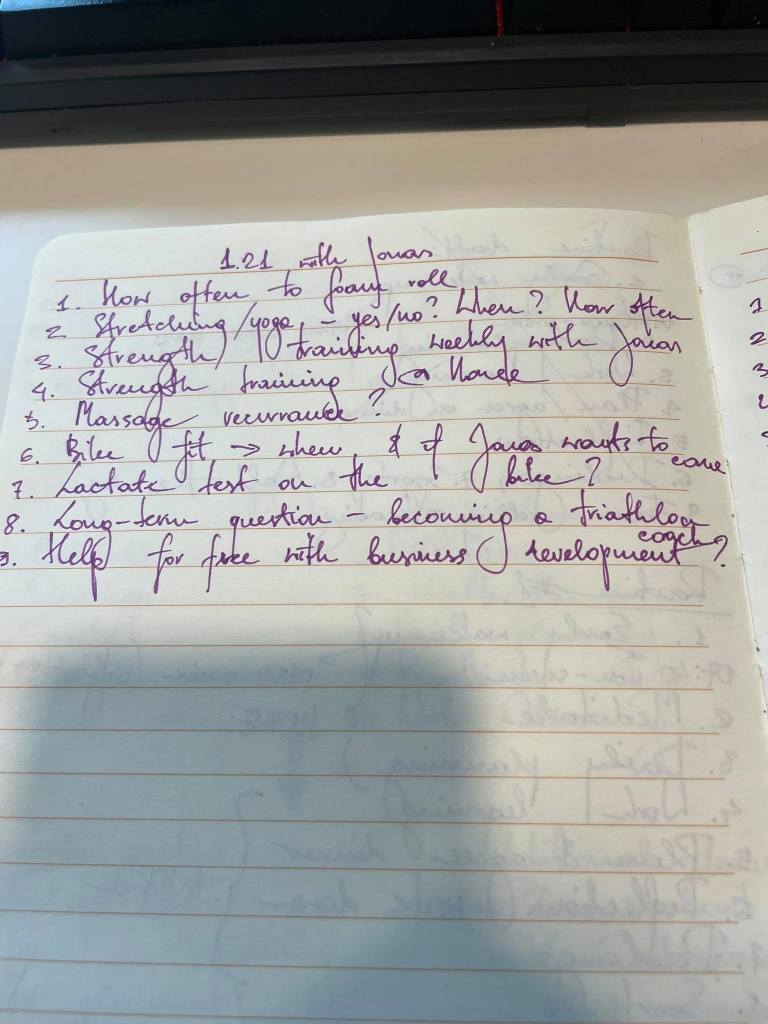 1:21 with Jonas
1. How often to foam roll
2. Stretching/yoga - yes/no? When? How often
3. Strength training weekly with Jonas
4. Strength training @ Home
5. Massage recurrance?
6. Bike fit → when & if Jonas wants to come
7. Lactate test on the bike?
8. Long-term question - becoming a triathlon coach
9. Help for free with business development?
1
2
3